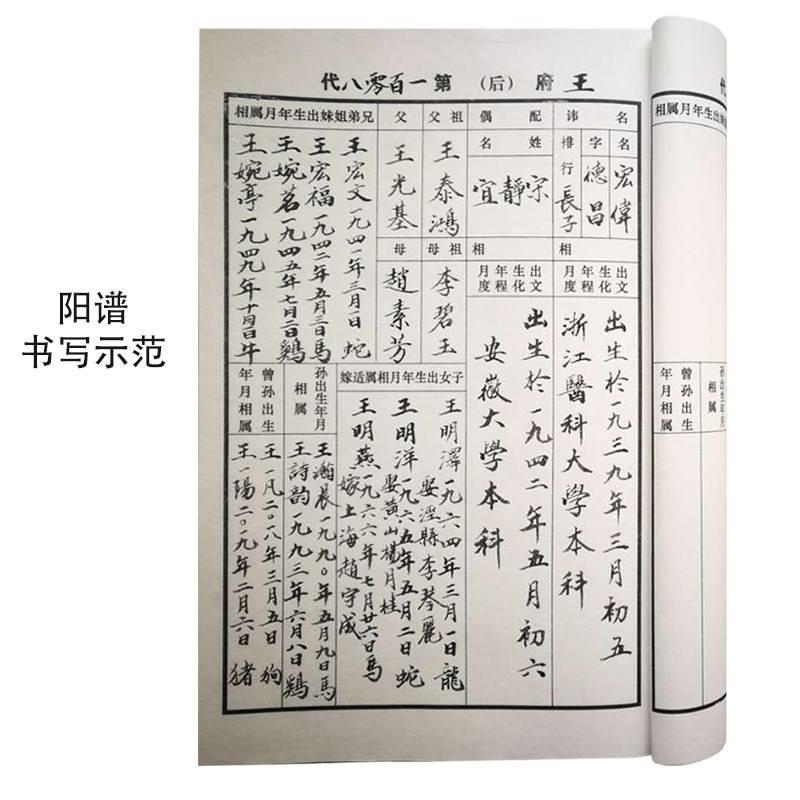 阳谱
书写示范
王府（后）第一百零八代
名讳
宏偉
字
德昌
排行
長子
配偶
姓名
宋靜宜
祖父
王泰鴻
父
王光基
祖母
李碧玉
母
趙素芳
兄弟姐妹出生年月属相
王宏文一九四一年三月一日蛇
王宏福一九四二年五月三日馬
王婉茗一九四五年七月二日鷄
王婉亭一九四九年十月四日牛
出生年月相
文化程度
出生於一九三九年三月初五
浙江醫科大學本科
出生年月相
文化程度
出生於一九四二年五月初六
安徽大學本科
子女出生年月相属适嫁
王明澤一九六四年三月一日龍
娶涇縣李琴麗
王明洋一九六五年五月二日蛇
娶黄山楊月桂
王明燕一九六六年七月廿六日馬
嫁上海趙宇成
孙出生年月相属
王瀚晨一九九〇年五月九日馬
王詩韵一九九三年六月八日鷄
曾孙出生年月相属
王一凡二〇一八年三月五日狗
王一陽二〇一九年二月六日猪
代
相属月年生出
孙出生年月相属
曾孙出生年月相属